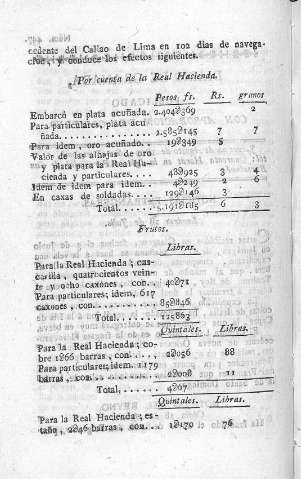 cedente del Callao de Lima en 102 dias de navega-
cion, y conduce los efectos siguientes.
Por cuenta de la Real Hacienda.
Pesos fs. Rs. granos
Embarcó en plata acuñada. 2
Para particulares, plata acu-
ñada. 7 7
Para idem, oro acuñado. 19@349 5
Valor de las alhajas de oro
y plata para la Real Ha-
cienda y particulares. 48@925 3 4
Idem de idem para idem. 4@249 2 6
En caxas de soldadas. 129@146 3
Total. 6 3
Frutos.
Libras.
Para la Real Hacienda; cas-
carilla, quatrocientos vein-
te y ocho caxones, con. 40@71
Para particulares; idem, 617
caxones, con. 85@846
Total. 125863
Quintales. Libras.
Para la Real Hacienda; co-
bre 1266 barras, con. 2@056 88
Para particulares; idem 1179
barras, con. 2@008 11
Total. 4@67
Quintales. Libras.
Para la Real Hacienda; es-
taño, 2@46 barras, con. 1@170 76